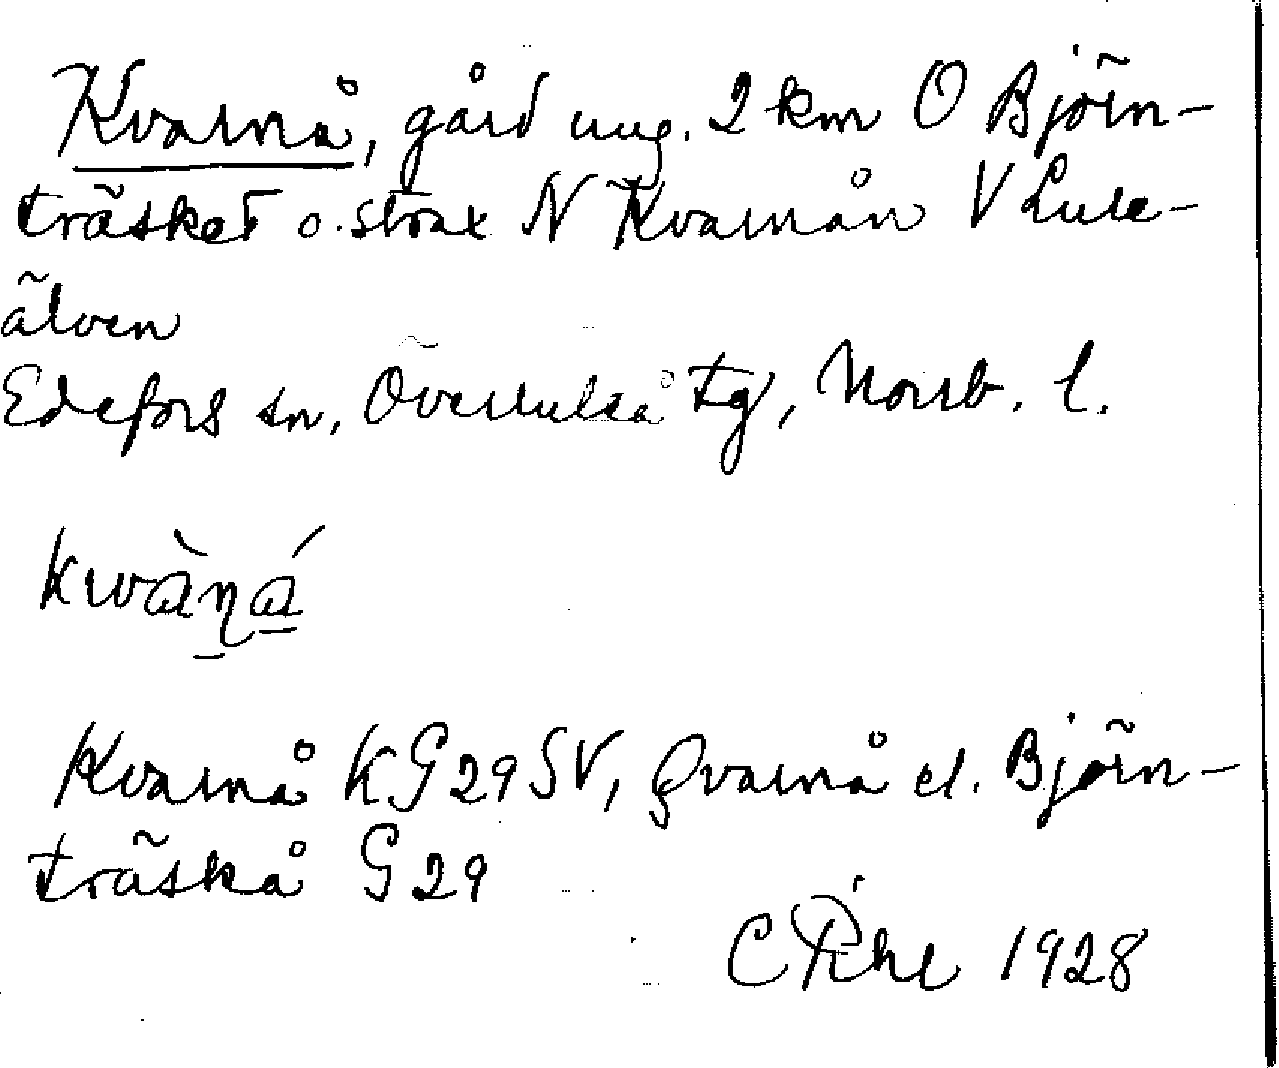 Kvarnå, gård ung. 2 km O Björn-
träsket o. strax N Kvarnån V Lule-
älven
Edefors sn, Överluleå tg, Norrb. l.
Kvarnå KG29SV, Qvarnå el. Björn-
träskå G29
1928